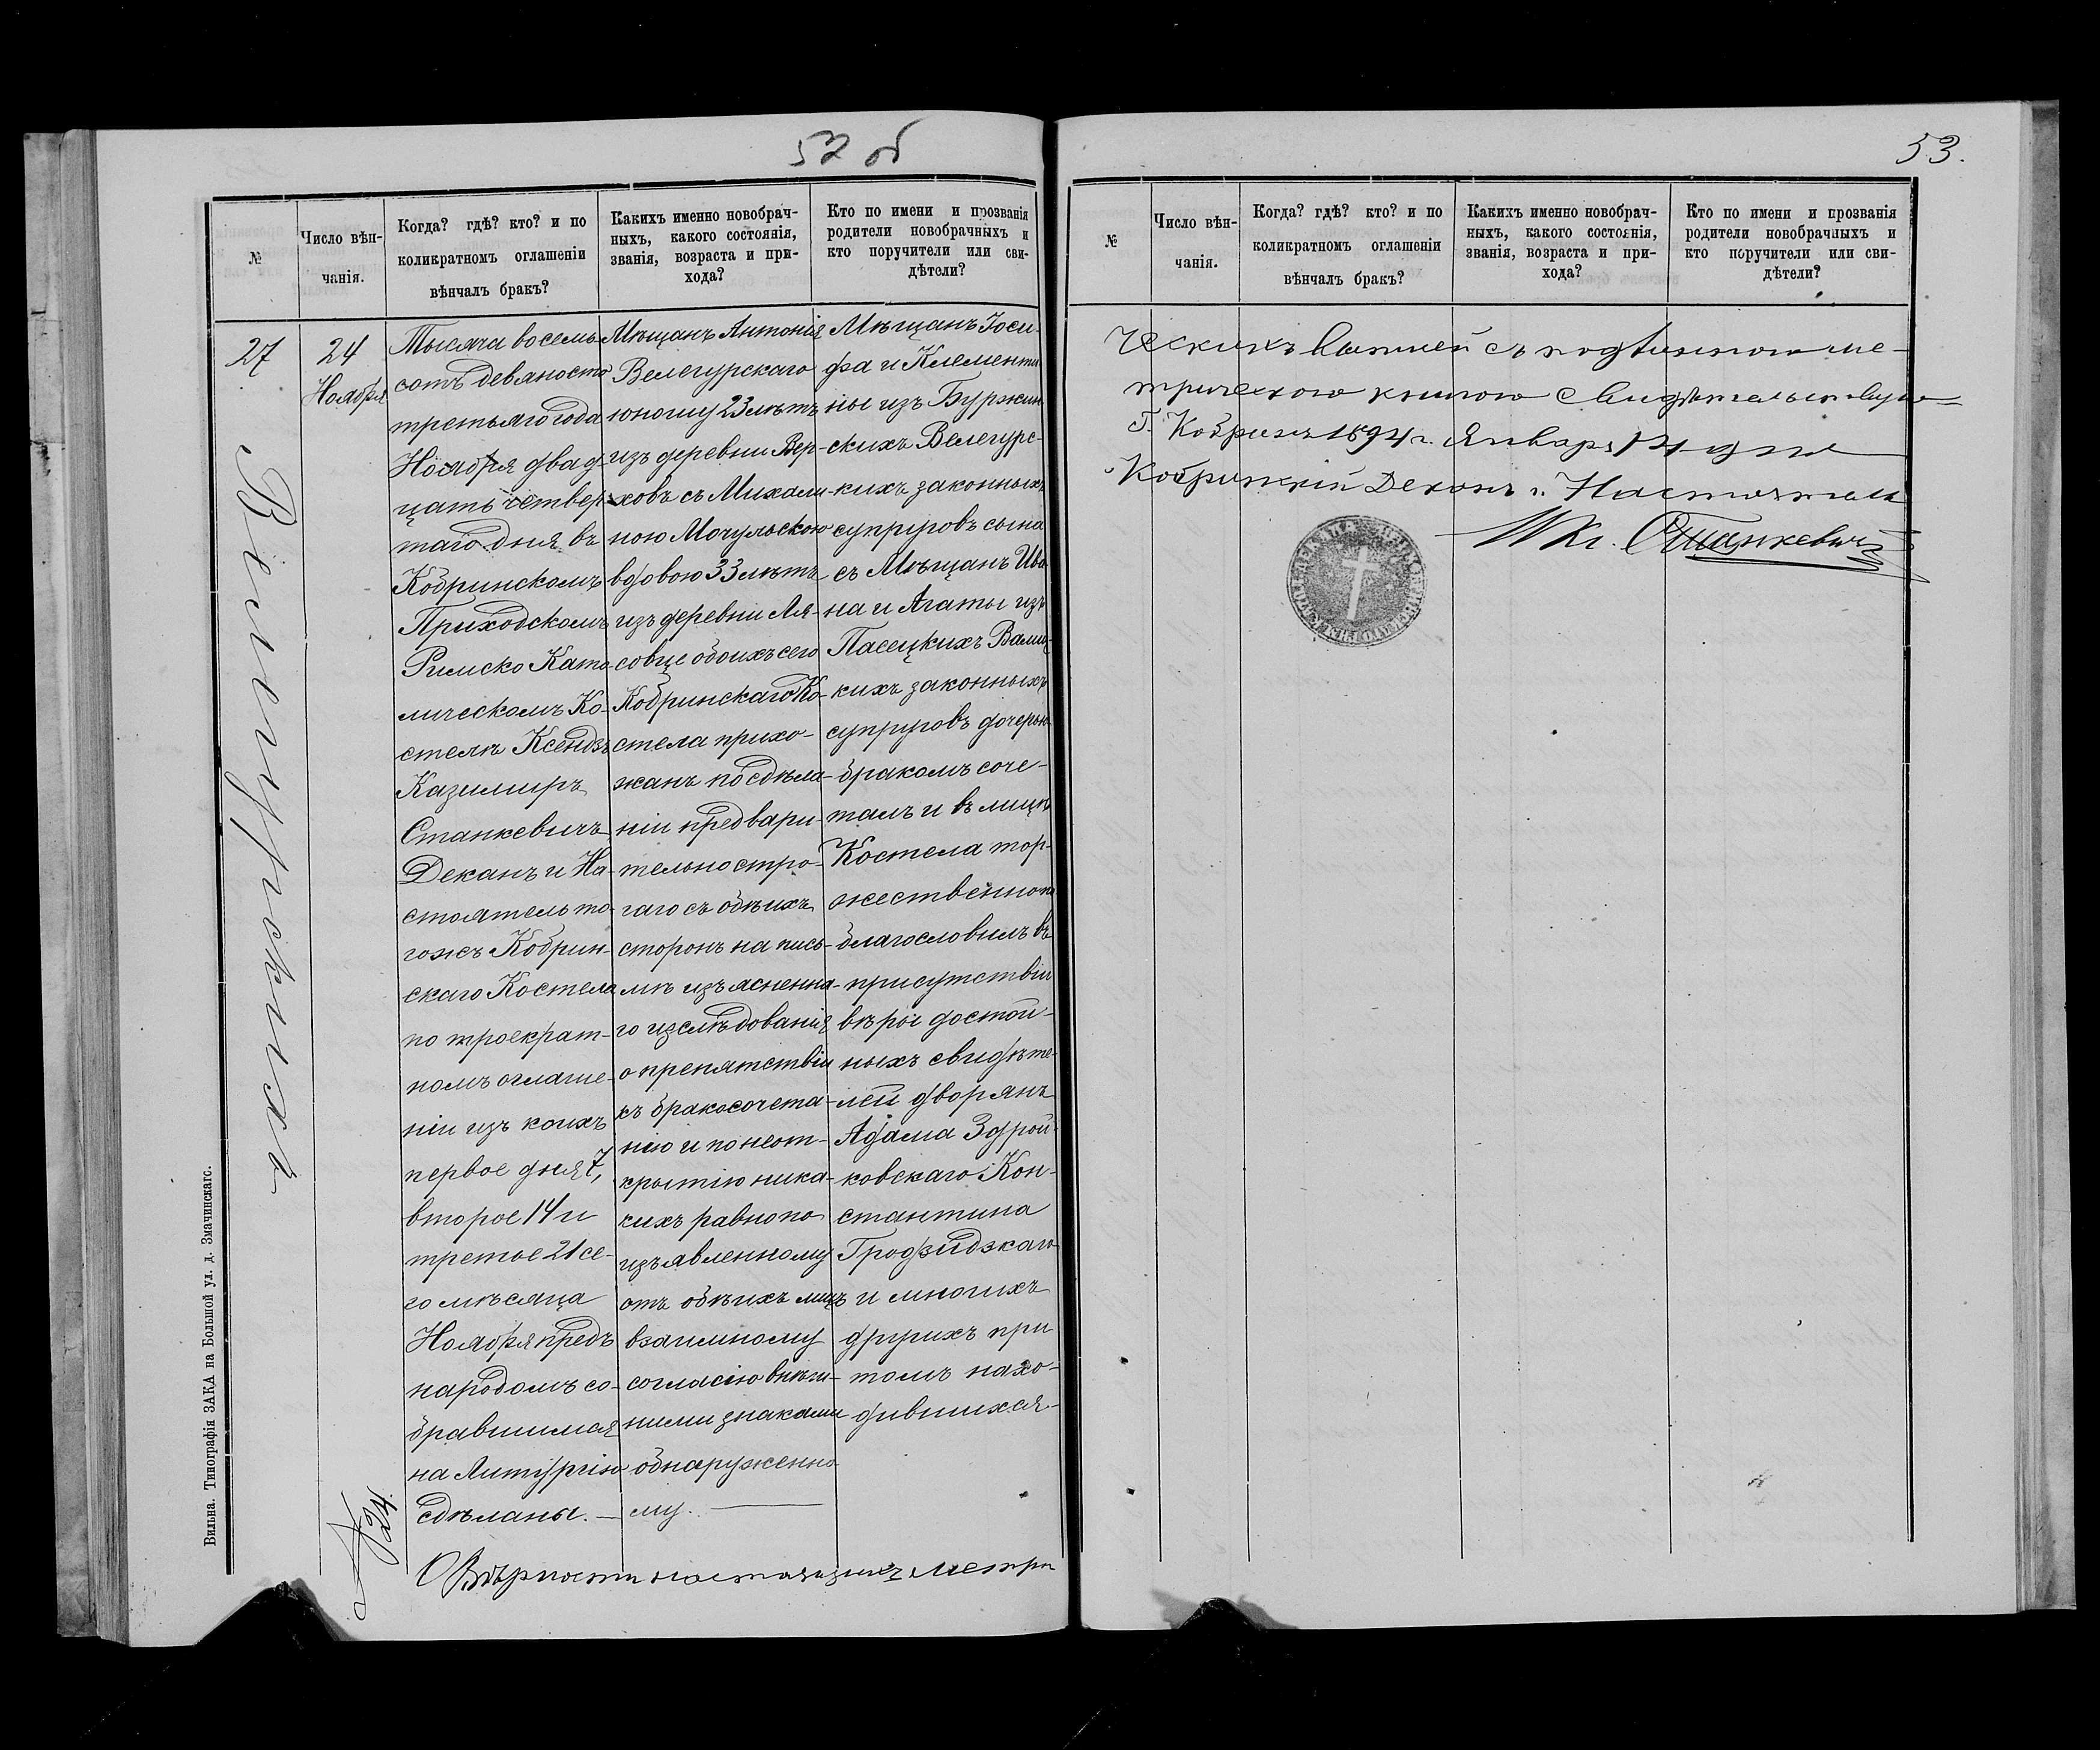 52 об
№
Число вѣн-
чанія.
Когда? гдѣ? кто? и по
коликратномъ оглашеніи
вѣнчалъ бракъ?
Какихъ именно новобрач-
ныхъ, какого состоянія,
званія, возраста и при-
хода?
Кто по имени и прозванія
родители новобрачныхъ и
кто поручители или сви-
дѣтели?
27
Велегурскихъ
24
Ноября
Тысяча восемь
сотъ девяносто
третьяго года
Ноября двад-
цать четвер-
таго дня въ
Кобринскомъ
Приходскомъ
Римско Като-
лическомъ Ко-
стелѣ Ксендзъ
Казимиръ
Станкевичъ
Деканъ и На-
стоятель то-
гожъ Кобрин-
скаго Костела
по троекрат-
номъ оглаше-
ніи изъ коихъ
первое дня 7,
второе 14 и
третье 21 се-
го мѣсяца
Ноября предъ
народомъ со-
бравшимся
на Литургію
сдѣланы. —
Мѣщанъ Антонія
Велегурскаго
юношу 23 лѣтъ
изъ деревни Вер-
ховъ съ Михали-
ною Мочульскою
вдовою 33 лѣтъ
изъ деревни Ля-
совце обоихъ сего
Кобринскаго Ко-
стела прихо-
жанъ по сдѣла-
ніи предвари-
тельно стро-
гаго съ обѣихъ
сторонъ на пись-
мѣ изъясненна-
го изслѣдованія
о препятствіи
къ бракосочета-
нію и по неот-
крытію ника-
кихъ равно по
изъявленному
отъ обѣихъ лицъ
взаимному
согласію внѣш-
ними знаками
обнаруженно-
му. —
Мѣщанъ Іоси-
фа и Клементи-
ны изъ Буржин-
скихъ Велегурс-
кихъ законныхъ
супруговъ сына
съ Мѣщанъ Ива-
на и Агаты изъ
Пасецкихъ
кихъ законныхъ
супруговъ дочерью
бракомъ соче-
талъ и въ лицѣ
Костела тор-
жественно
благословилъ въ
присутствіи
вѣры достой-
ныхъ свидѣте-
лей дворянъ
Адама Здрой-
ковскаго Кон-
стантина
Гродзидзкаго
и многихъ
другихъ при
томъ нахо-
дившихся.
№ 24.
О Вѣрности настоящихъ метри
Вильна. Типографія ЗАКА на Большой ул. д. Змачинскаго.
53.
№
Число вѣн-
чанія.
Когда? гдѣ? кто? и по
коликратномъ оглашеніи
вѣнчалъ бракъ?
Какихъ именно новобрач-
ныхъ, какого состоянія,
званія, возраста и при-
хода?
Кто по имени и прозванія
родители новобрачныхъ и
кто поручители или сви-
дѣтели?
ческихъ выписей съ подлинною ме-
трическою книгою свидѣтельствую
Г. Кобринъ 1894 г. Января дня
Кобринскій Деканъ и Настоятель
Кс. Станкевичъ